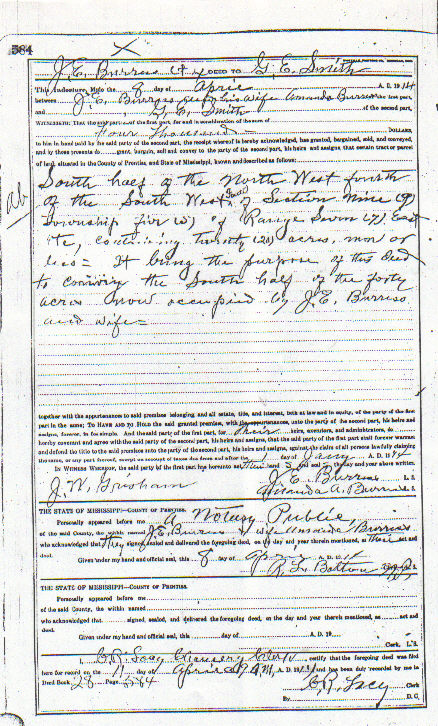 584
J. E. Burress & DEED TO G. E. Smith
This Indenture, Made the 8 day of April A. D. 1914
between J. E. Burress and his wife Amanda Burress of the first part,
and G. E. Smith of the second part,
WITNESSETH: That the said part of the first part, for and in consideration of the sum of
Four Thousand DOLLARS
to him in hand paid by the said party of the second part, the receipt whereof is hereby acknowledged, has granted, bargained, sold, and conveyed,
and by these presents do grant, bargain, sell and convey to the party of the second part, his heirs and assigns that certain tract or parcel
of land, situated in the County of Prentiss, and State of Mississippi, known and described as follows:
South half of the North West fourth
of the South West of Section Nine (9)
Township five (5) of Range Seven (7) East
containing twenty (20) acres, more or
less = It being the purpose of this deed
to convey the South half of the forty
acres now occupied by J. E. Burress
and wife =
together with the appurtenances to said premises belonging, and all estate, title, and interest, both at law and in equity, of the party of the first
part in the same; TO HAVE AND TO HOLD the said granted premises, with the appurtenances, unto the party of the second part, his heirs and
assigns, forever, in fee simple. And the said party of the first part, for their heirs, executors, and administrators, do
hereby covenant and agree with the said party of the second part, his heirs and assigns, that the said party of the first part shall forever warrant
and defend the title to the said premises unto the party of the second part, his heirs and assigns, against the claim of all persons lawfully claiming
the same, or any part thereof, except as to taxes due from and after the 1 day of Jany A. D. 1914
IN WITNESS WHEREOF, the said party of the first part has hereunto set their hand s and seal the day and year above written.
J. E. Burress L. S.
J. W. Grisham Amanda A. Burress
THE STATE OF MISSISSIPPI—COUNTY OF PRENTISS.
Personally appeared before me a Notary Public
of the said County, the within named J. E. Burress & wife Amanda Burress
who acknowledged that they signed, sealed and delivered the foregoing deed, on the day and year therein mentioned, as their act and
deed.
Given under my hand and official seal, this 8 day of April A. D. 1914
THE STATE OF MISSISSIPPI—COUNTY OF PRENTISS.
Personally appeared before me
of the said County, the within named
who acknowledged that signed, sealed, and delivered the foregoing deed, on the day and year therein mentioned, as act and
deed.
Given under my hand and official seal, this day of A. D. 19
Clerk. L. S.
I, C. R. Lacy Chancery Clerk certify that the foregoing deed was filed
here for record on the 11 day of April and has been duly recorded by me in
Deed Book 28 Page 584
C. R. Lacy Clerk
By D. C.